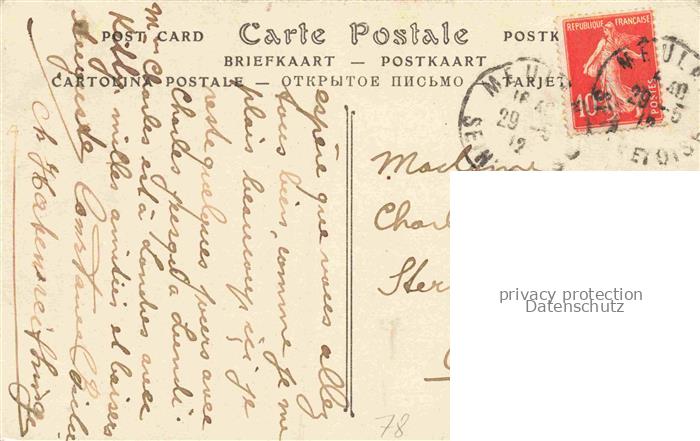 POST CARD Carte Postale POSTK
BRIEFKAART — POSTKAART
CARTOLINA POSTALE — ОТКРЫТОЕ ПИСЬМО TARJET
REPUBLIQUE FRANÇAISE
10
POSTES
MEUL
16 40
29 -5
12
SEIN
MEUL
40
29 -5
12
ET OISE
espère que vous allez
tous bien, comme je me
plais beaucoup ici je
reste quelques jours avec
Charles jusqu'à Lundi.
Mon Charles est à Londres avec
Kelly milles amitiés et baisers
Auguste Constance
Ch
Madame
Charl
Ster
privacy protection
Datenschutz
78